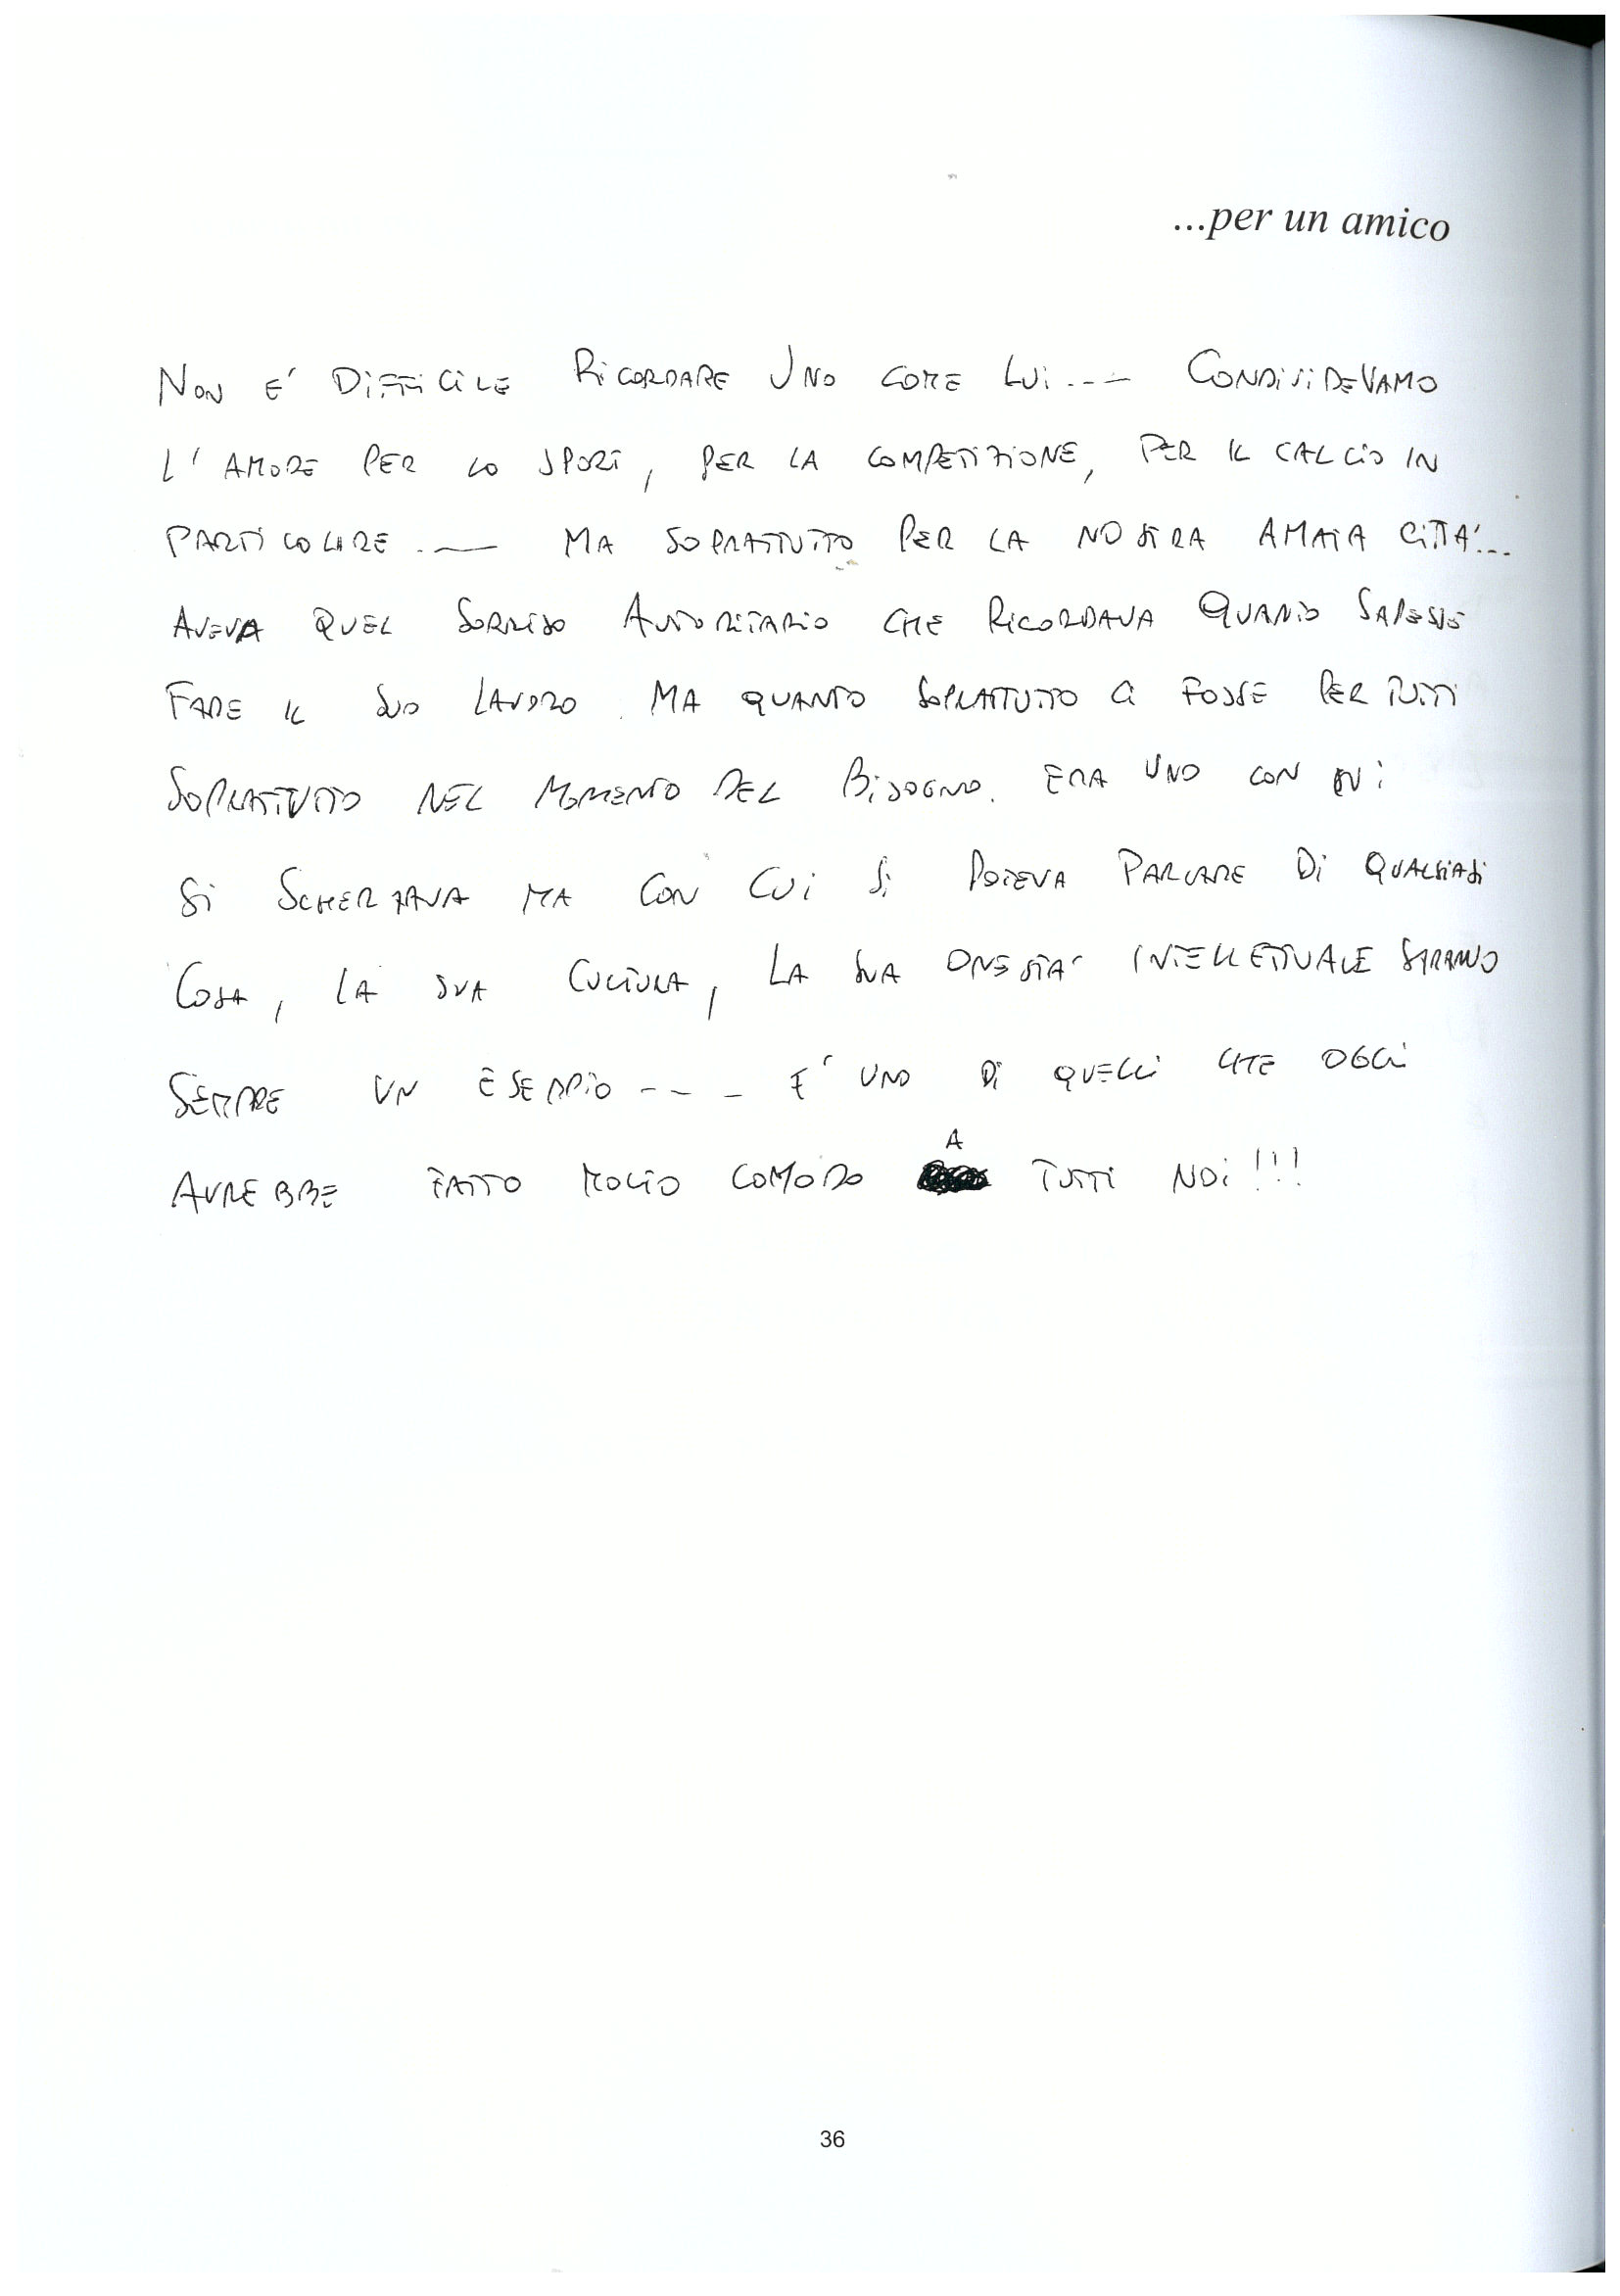 ...per un amico
NON E' DIFFICILE RICORDARE UNO COME LUI... CONDIVIDEVAMO
L'AMORE PER LO SPORT, PER LA COMPETIZIONE, PER IL CALCIO IN
PARTICOLARE... MA SOPRATTUTTO PER LA NOSTRA AMATA CITTA'...
AVEVA QUEL SORRISO AUTORITARIO CHE RICORDAVA QUANTO SAPESSE
FARE IL SUO LAVORO. MA QUANTO SOPRATTUTTO CI FOSSE PER TUTTI
SOPRATTUTTO NEL MOMENTO DEL BISOGNO. ERA UNO CON CUI
SI SCHERZAVA MA CON CUI SI POTEVA PARLARE DI QUALSIASI
COSA, LA SUA CULTURA, LA SUA ONESTA' INTELLETTUALE SARANNO
SEMPRE UN ESEMPIO.... E' UNO DI QUELLI CHE OGGI
AVREBBE FATTO MOLTO COMODO A TUTTI NOI!!!
36